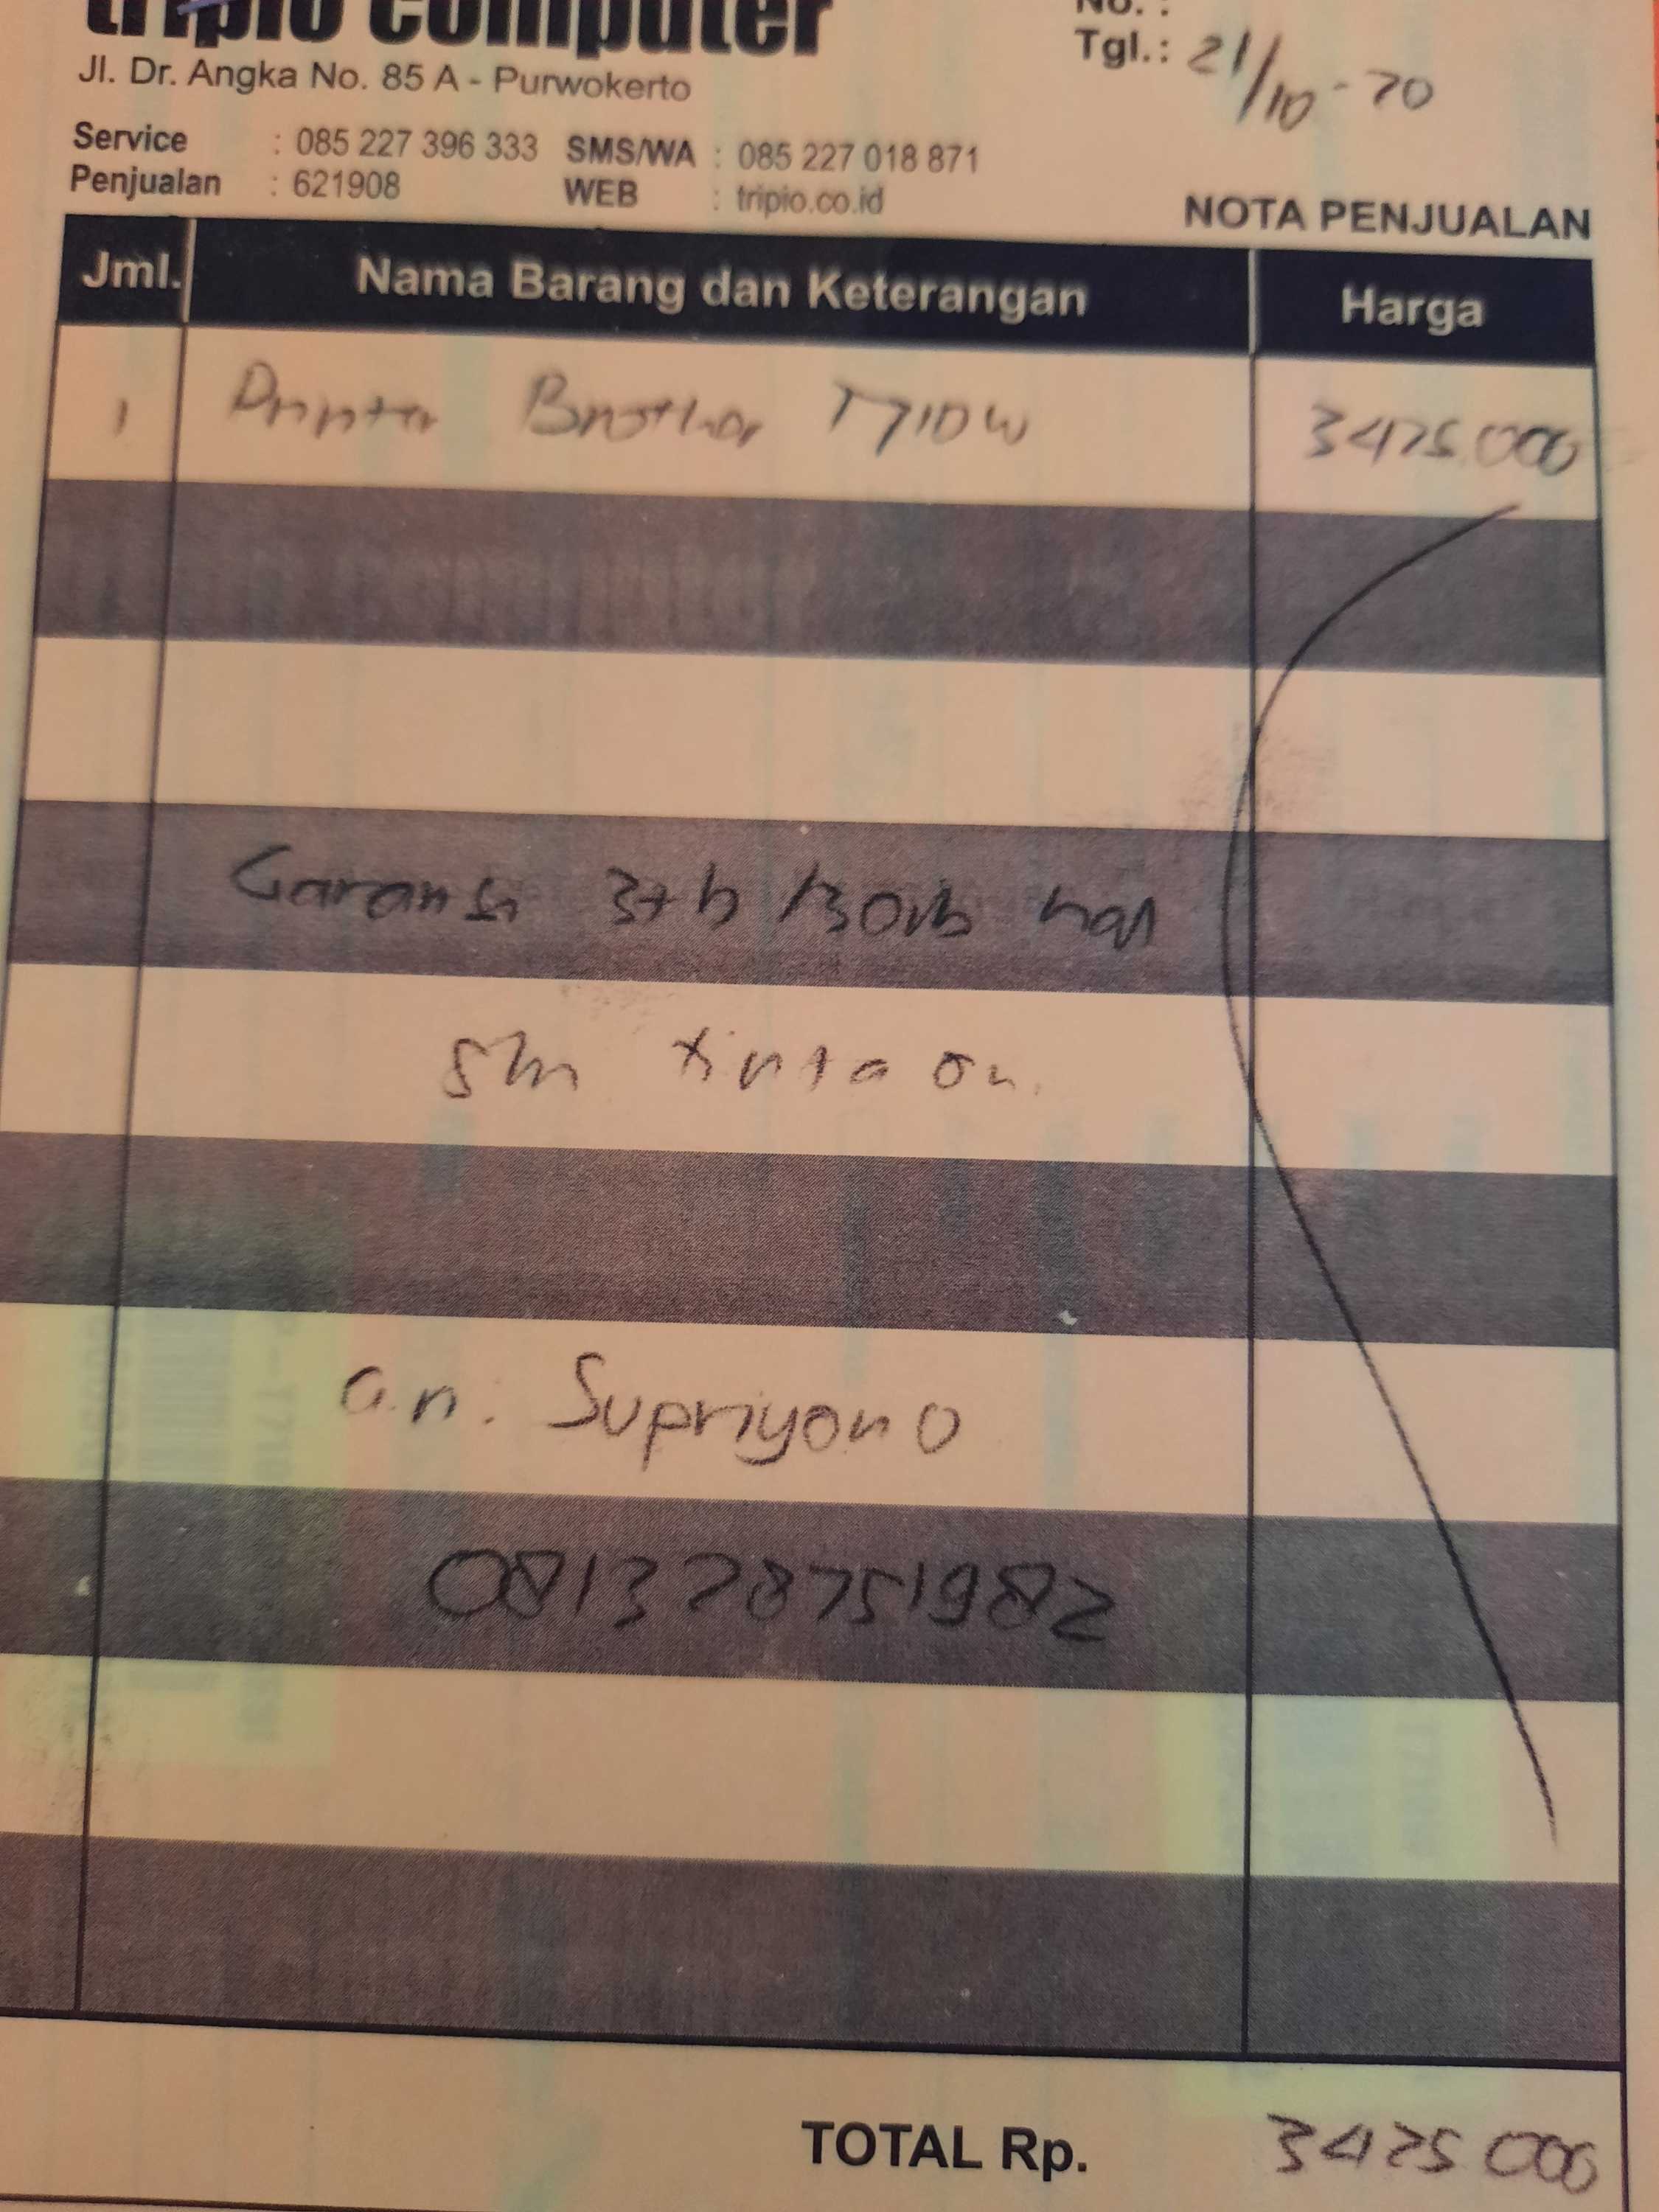 tripio computer
No. :
Tgl.: 21/10-20
Jl. Dr. Angka No. 85 A - Purwokerto
Service : 085 227 396 333 SMS/WA : 085 227 018 871
Penjualan : 621908 WEB : tripio.co.id
NOTA PENJUALAN
Jml. Nama Barang dan Keterangan Harga
1 Printer Brother T710W 3425.000
Garansi 3th /30rb hal
slm tinta ori.
a.n. Supriyono
081328751982
TOTAL Rp. 3425 000